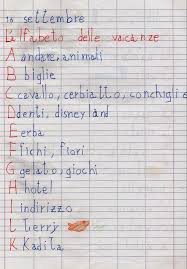 10 settembre
L'alfabeto delle vacanze
A andare, animali
B biglie
C cavallo, cerbiatto, conchiglie
D denti, disneyland
E erba
F fichi, fiori
G gelato, giochi
H hotel
I indirizzo
L Lierry
K Kadita